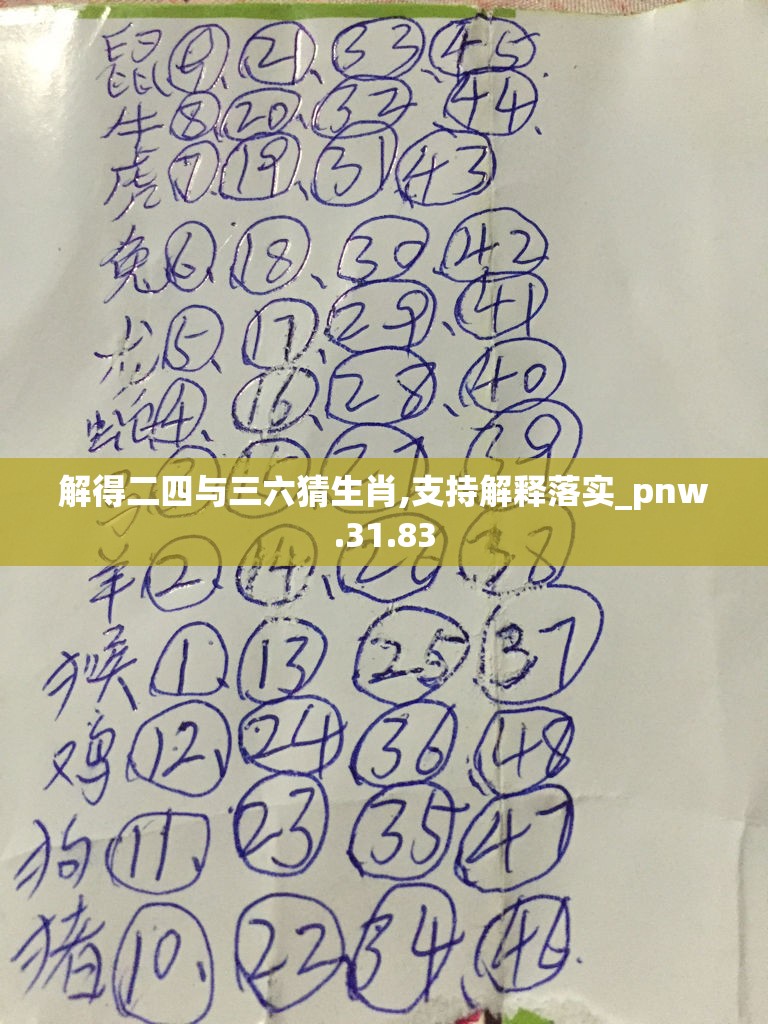 鼠⑨、㉑、㉝、㊺.
牛⑧、⑳、㉜、㊹.
虎⑦、⑲、㉛、㊸
兔⑥、⑱、㉚、㊷
龙⑤、⑰、㉙、㊶
蛇④、⑯、㉘、㊵
㊴
解得二四与三六猜生肖,支持解释落实_pnw
.31.83
羊②、⑭、㉖、㊳
猴①、⑬、㉕、㊲
鸡⑫、㉔、㊱、㊽
狗⑪、㉓、㉟、㊼
猪⑩、㉒、㉞、㊻.